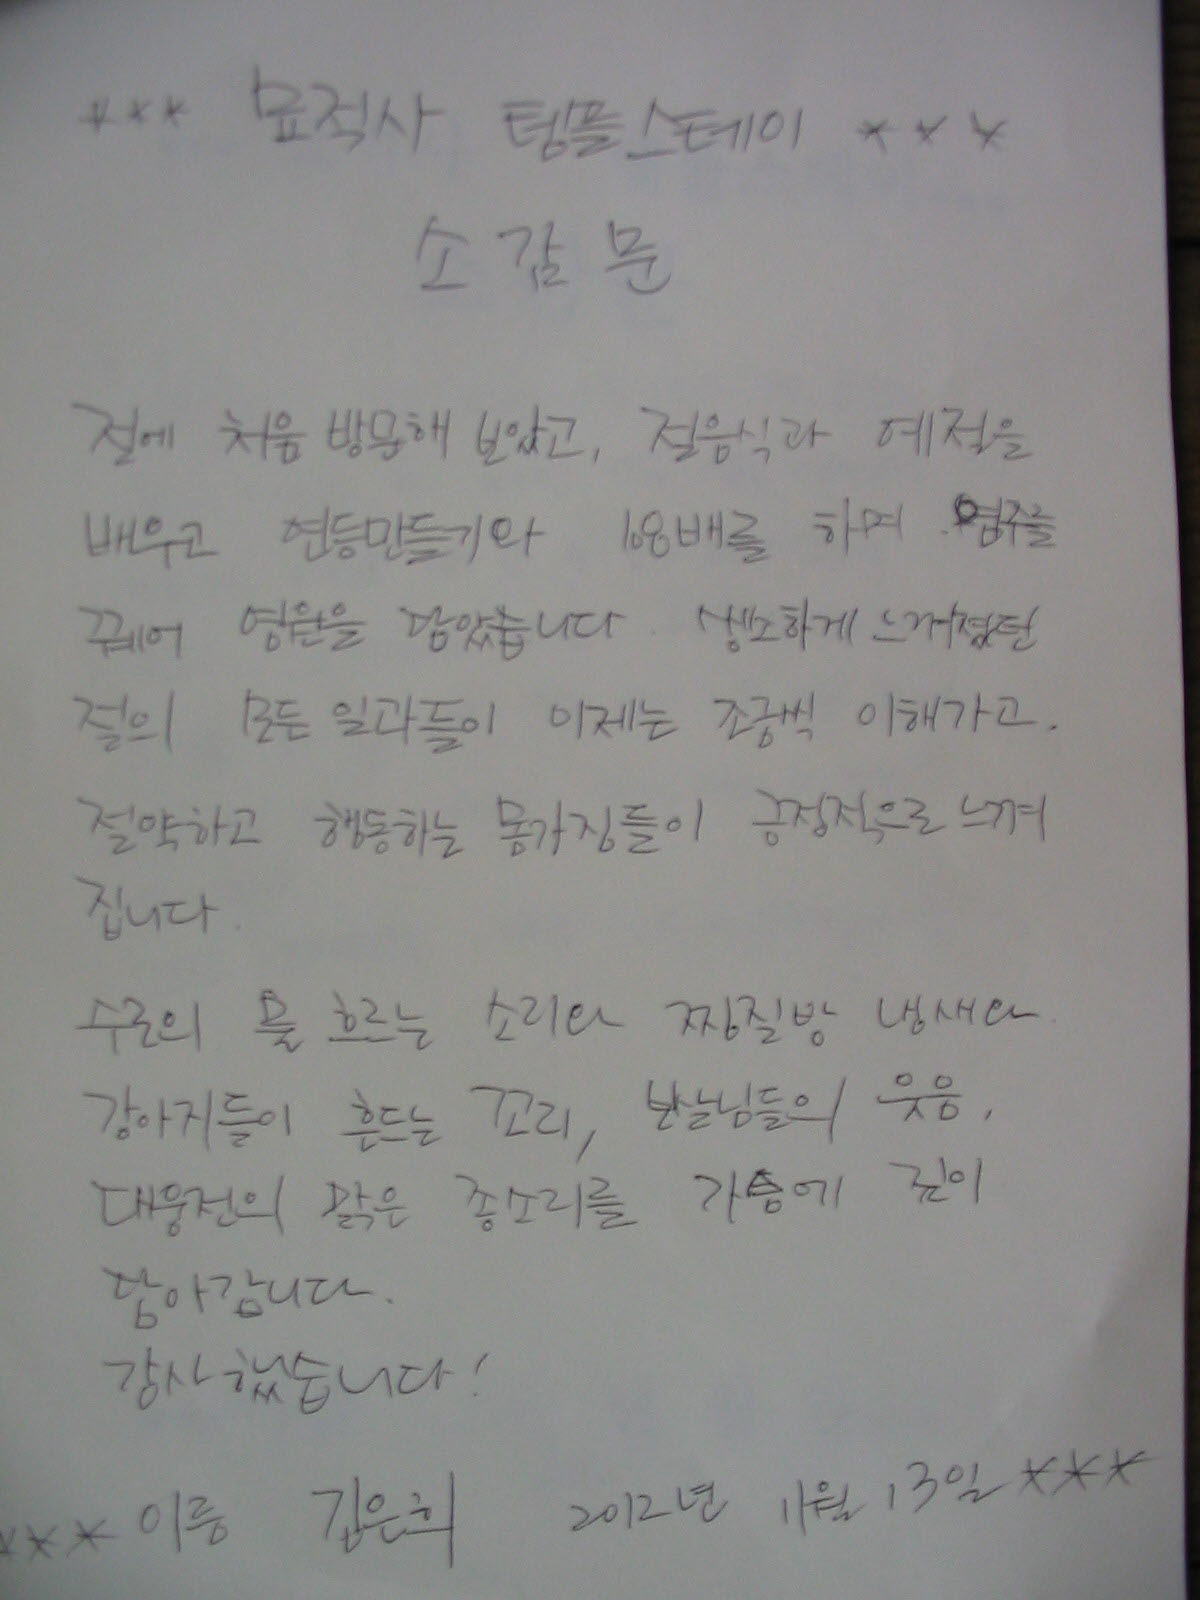 *** 묘적사 템플스테이 ***
소감문
절에 처음 방문해 보았고, 절음식과 예절을
배우고 연등만들기와 108배를 하며 염주를
꿰어 영원을 담았습니다. 생소하게 느껴졌던
절의 모든 일과들이 이제는 조금씩 이해가고.
절약하고 행동하는 몸가짐들이 긍정적으로 느껴
집니다.
수로의 물 흐르는 소리와 찜질방 냄새와
강아지들이 흔드는 꼬리, 보살님들의 웃음,
대웅전의 맑은 종소리를 가슴에 깊이
담아갑니다.
감사했습니다!
*** 이름 김은희 2012년 11월 13일 ***